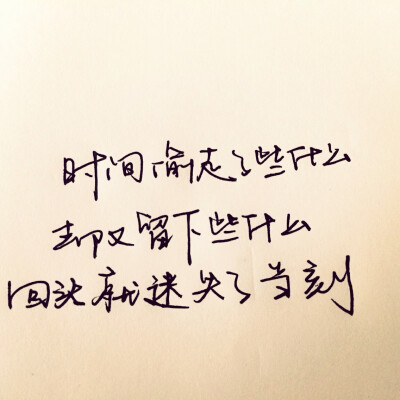 时间偷走了些什么
却又留下些什么
回头就迷失了当刻